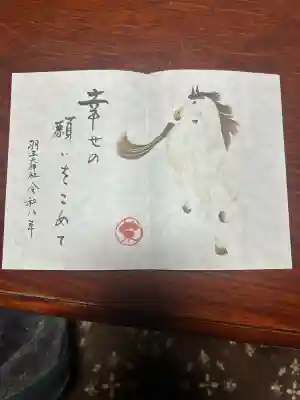 幸せの
願いをこめて
羽田神社 令和八年